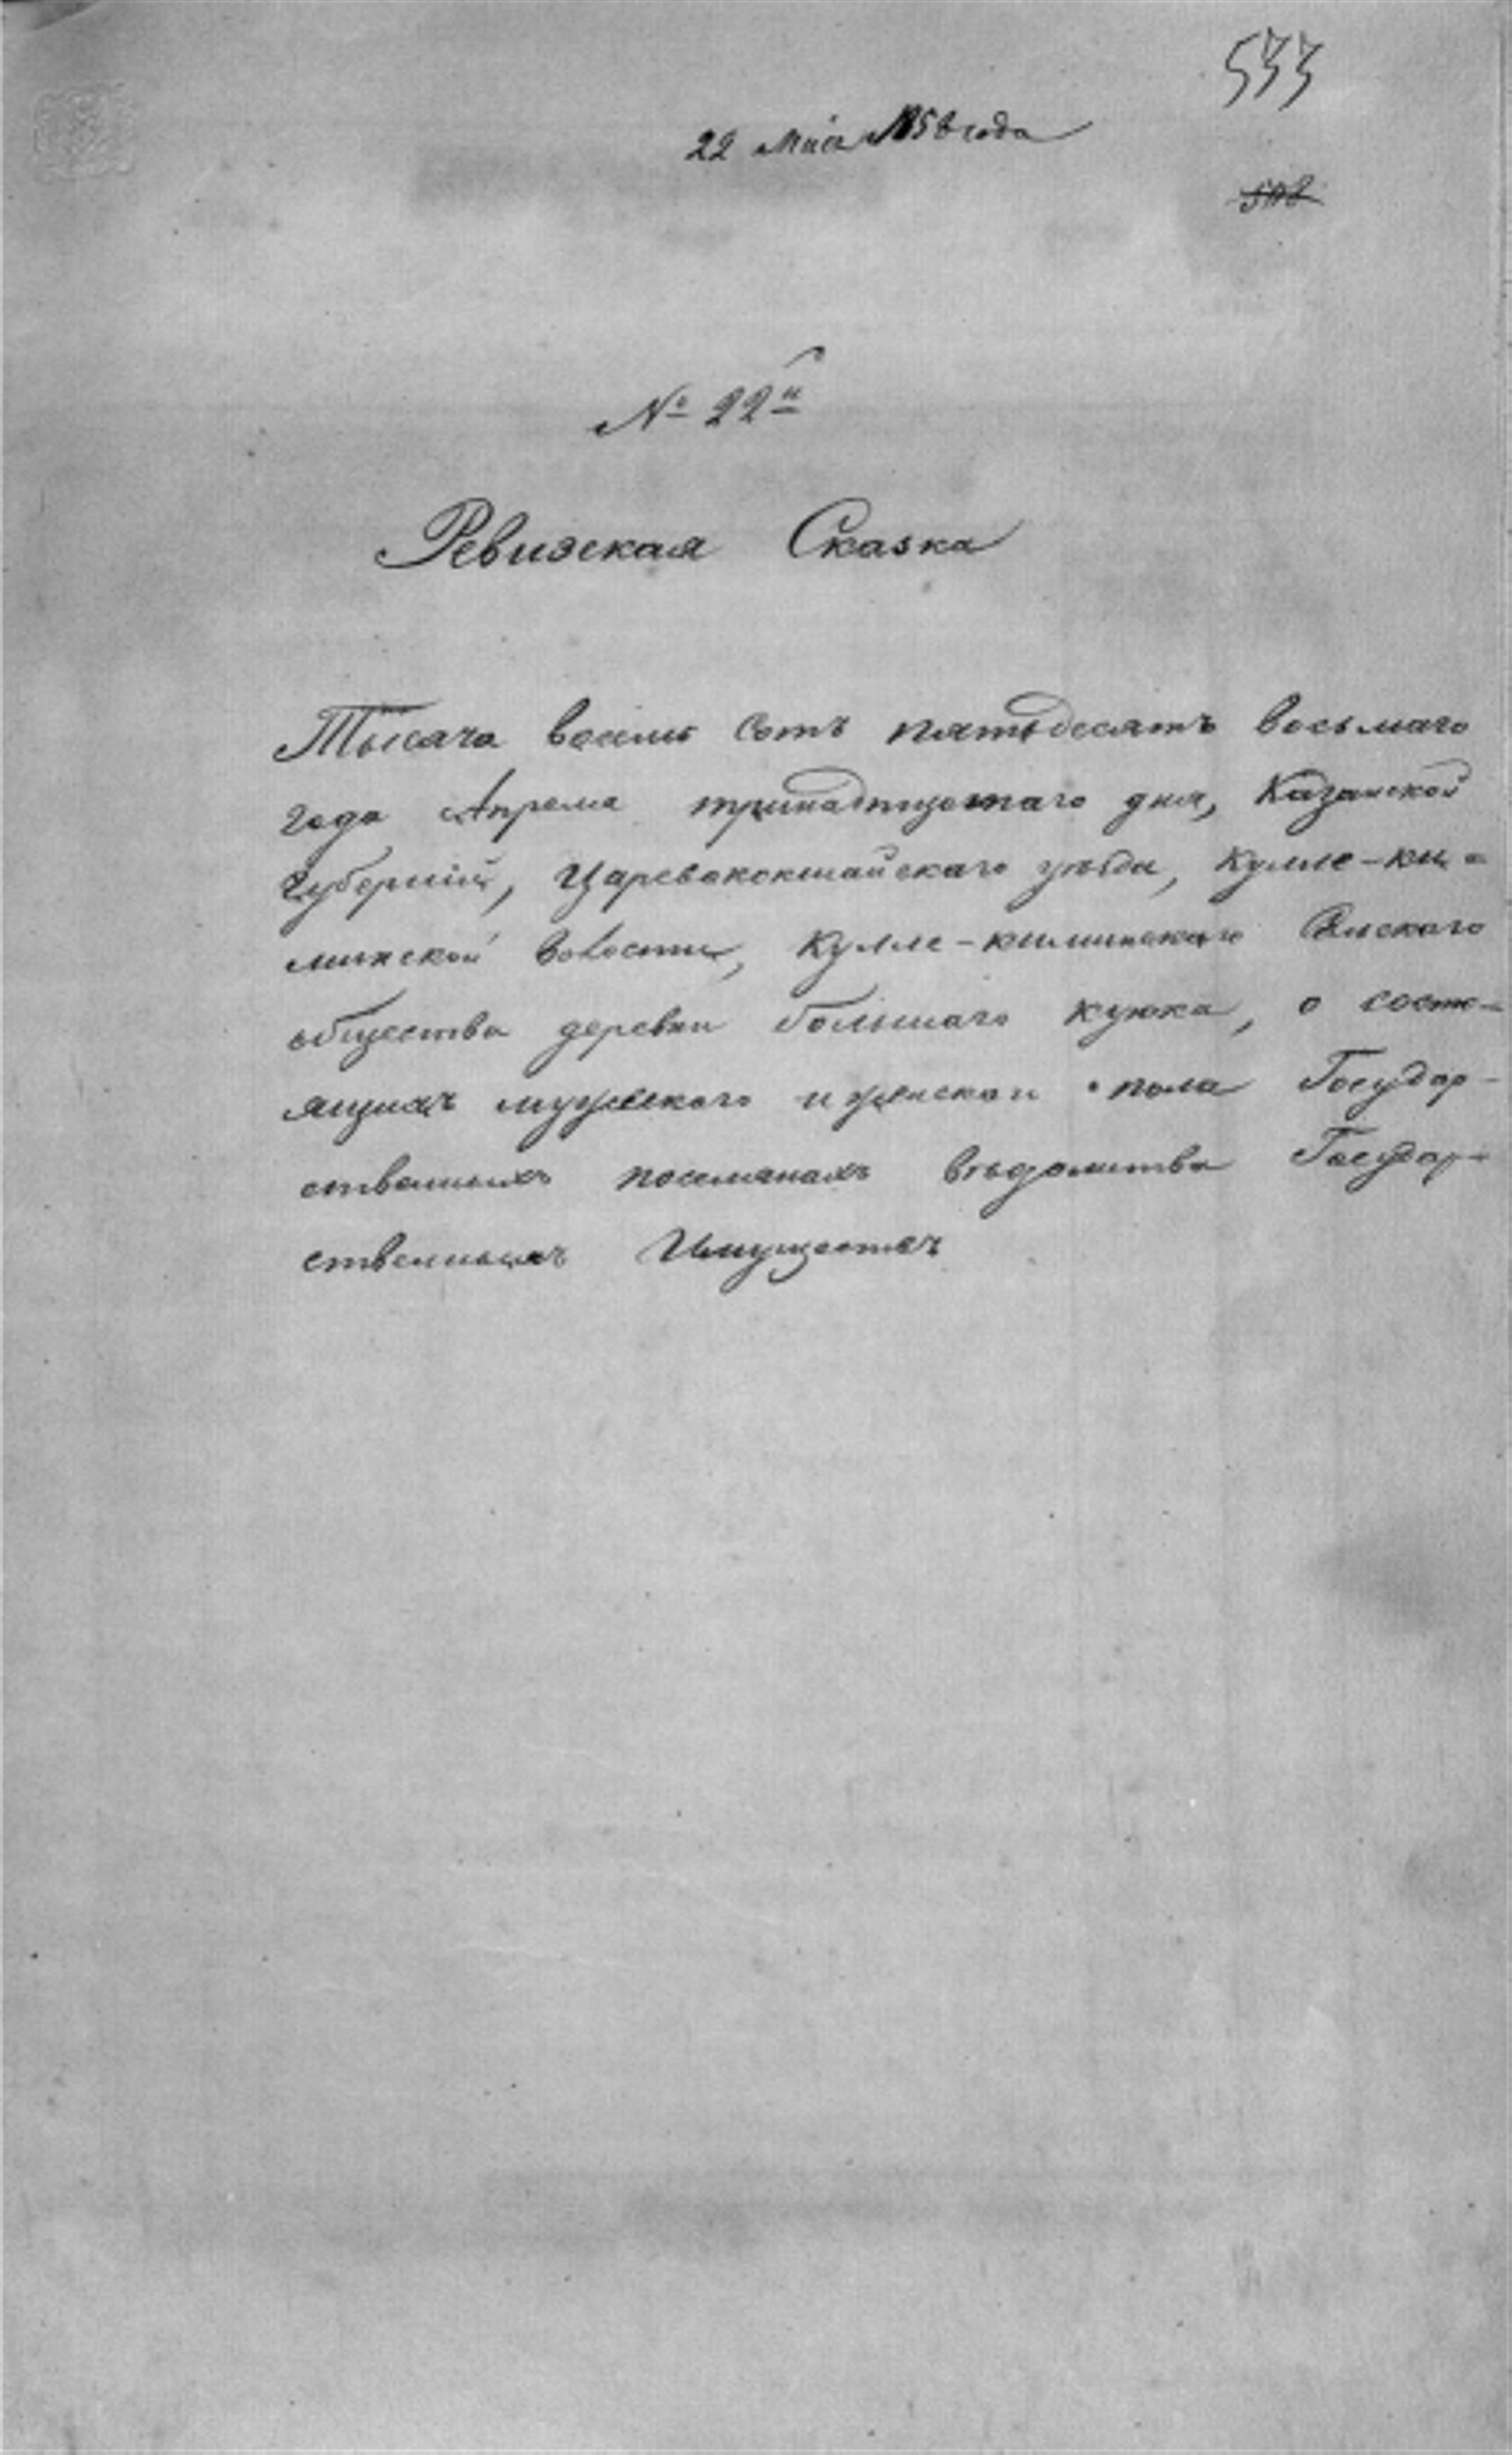 533
22 Мая 1858 года
№ 22й
Ревизская Сказка
Тысяча восемь сотъ пятьдесятъ восьмаго
года Апреля тринадтцетаго дня, Казанской
Губерніи, Царевококшайскаго уѣзда, Кулле-ки-
минской волости, Кулле-киминскаго Сельскаго
общества деревни большаго куюка, о состо-
ящихъ мужескаго и женскаго пола Государ-
ственныхъ поселянахъ вѣдомства Государ-
ственныхъ Имуществъ